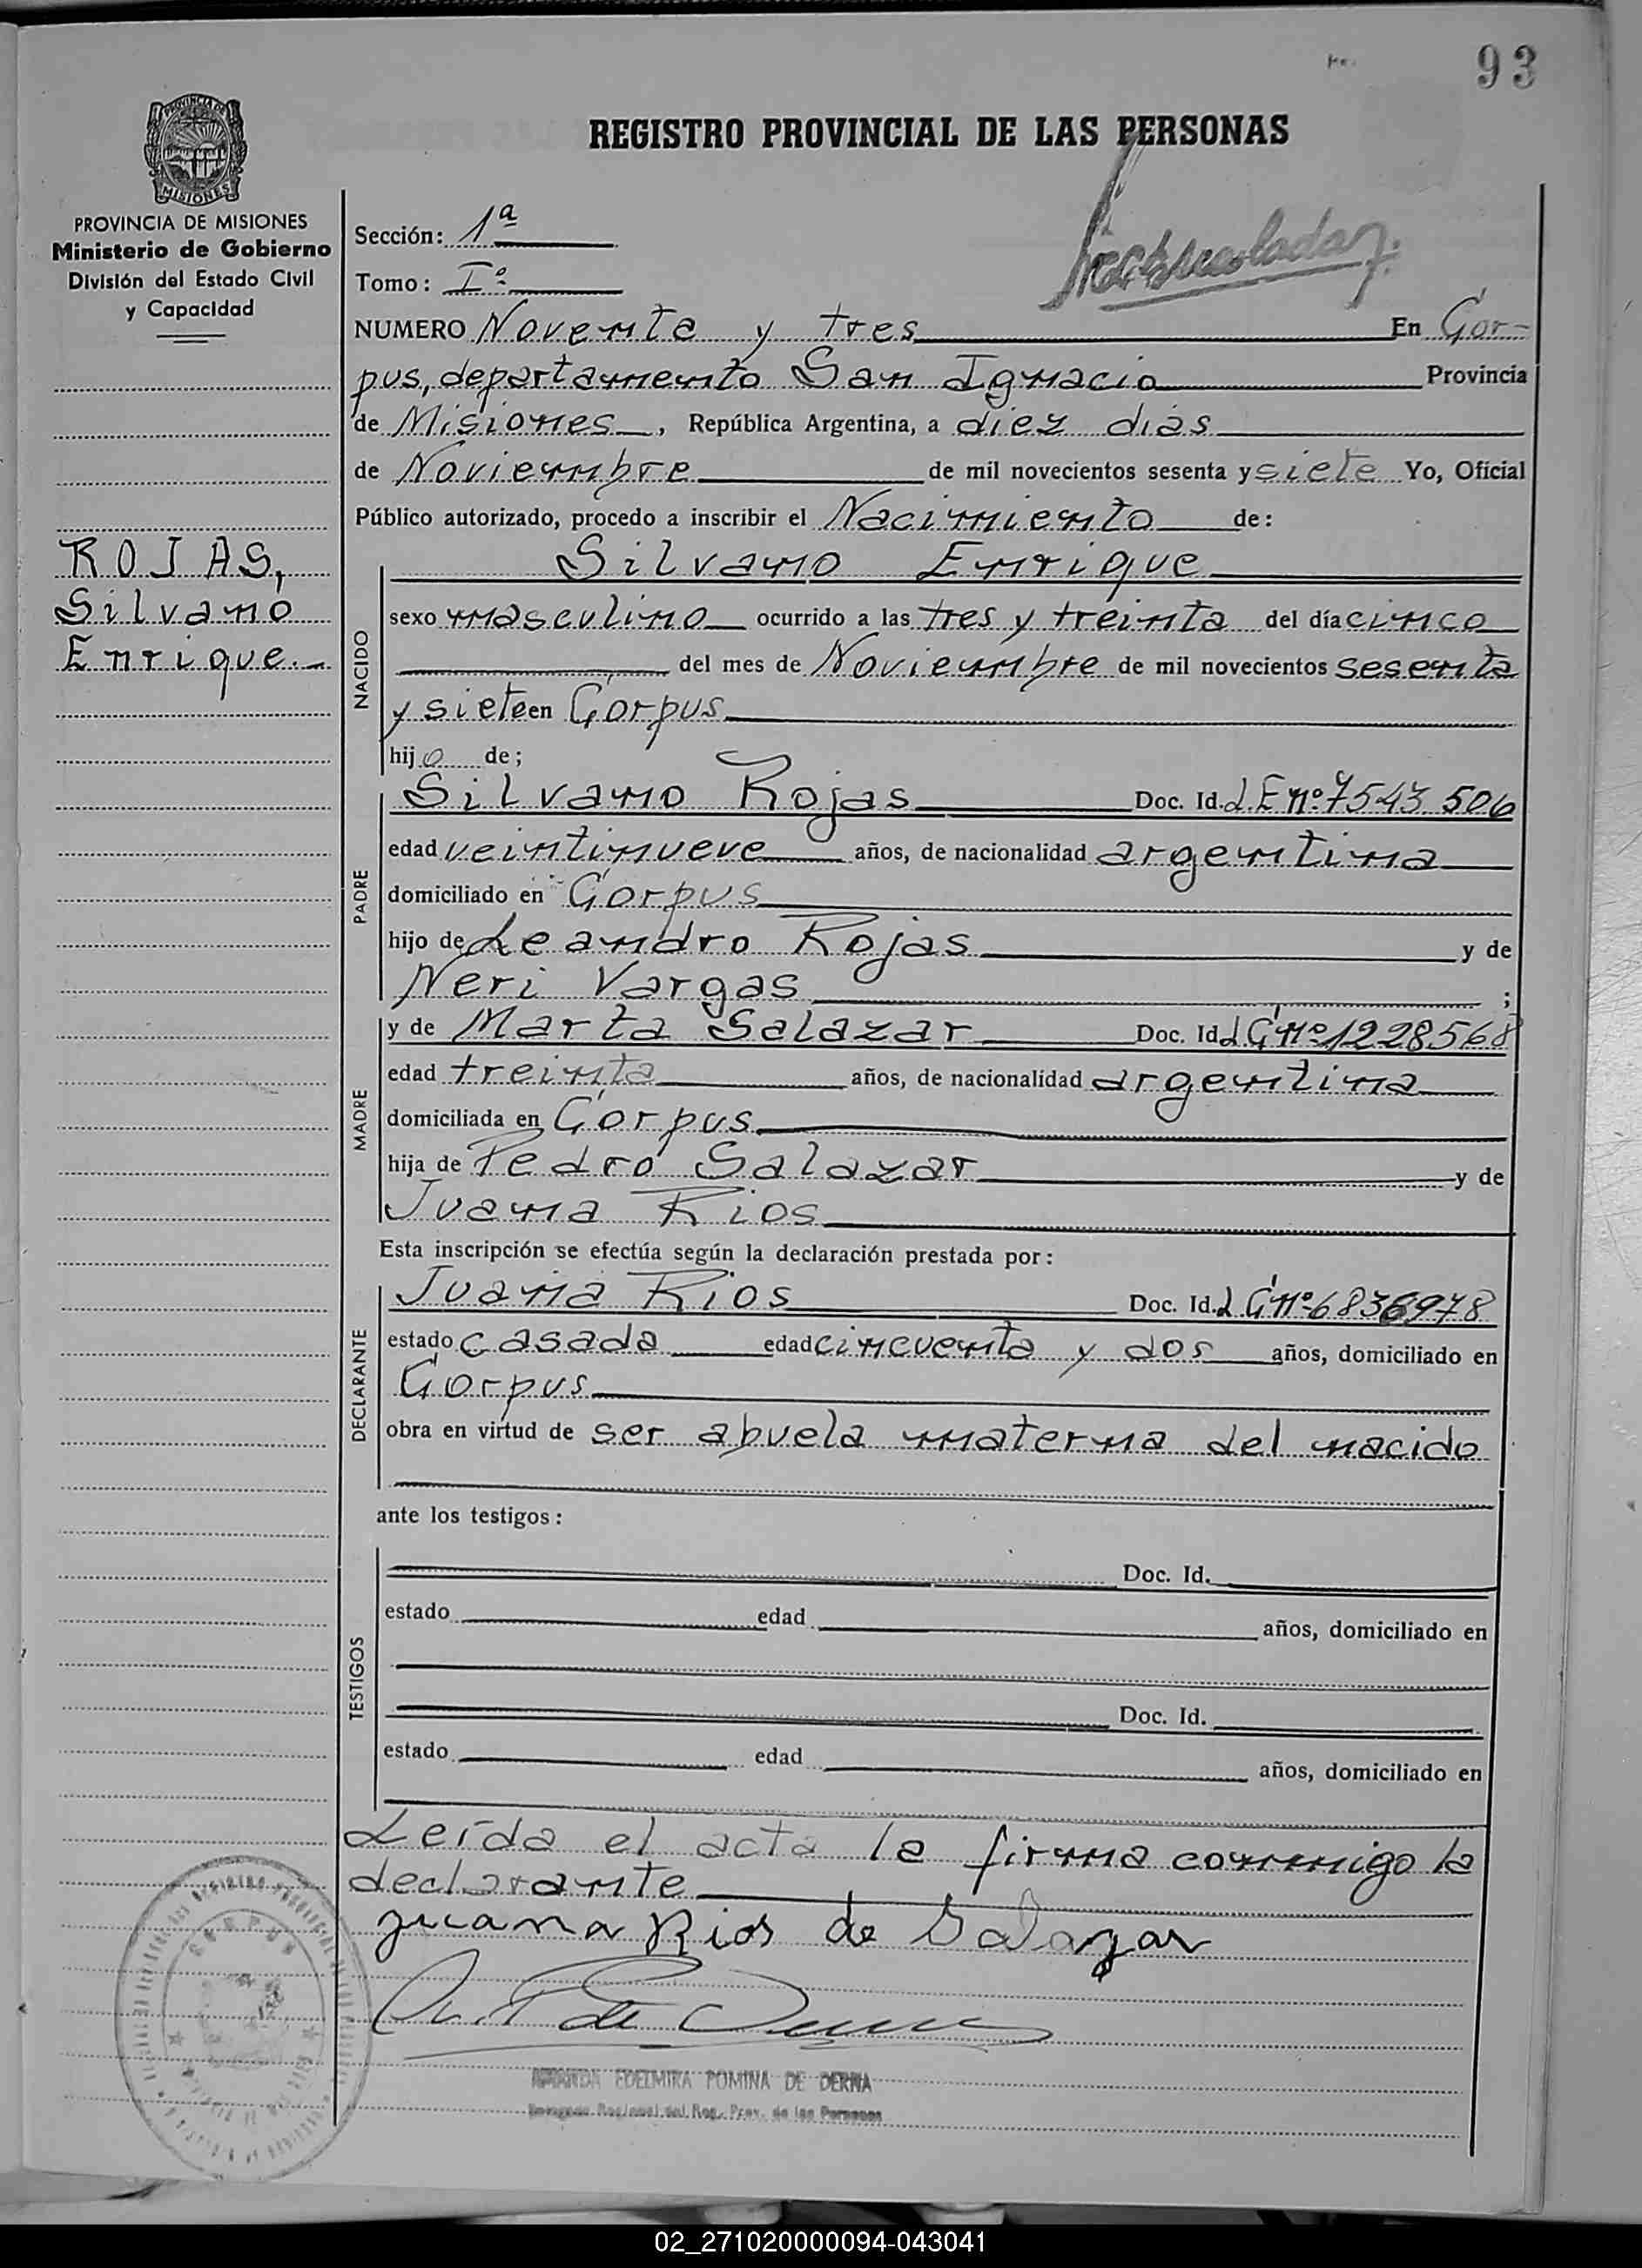 93
REGISTRO PROVINCIAL DE LAS PERSONAS
PROVINCIA DE
MISIONES
PROVINCIA DE MISIONES
Ministerio de Gobierno
División del Estado Civil
y Capacidad
ROJAS,
Silvano
Enrique.
Sección: 1ª
Tomo: Iº
NUMERO Noventa y tres En Cor-
pus, departamento San Ignacio Provincia
de Misiones, República Argentina, a diez dias
de Noviembre de mil novecientos sesenta y siete Yo, Oficial
Público autorizado, procedo a inscribir el Nacimiento de:
Silvano Enrique
NACIDO
sexo masculino ocurrido a las tres y treinta del día cinco
del mes de Noviembre de mil novecientos sesenta
y siete en Corpus
hijo de;
PADRE
Silvano Rojas Doc. Id. L.E nº 7543.506
edad veintinueve años, de nacionalidad argentina
domiciliado en Corpus
hijo de Leandro Rojas y de
Neri Vargas ;
MADRE
y de Marta Salazar Doc. Id. L C nº 1228568
edad treinta años, de nacionalidad argentina
domiciliada en Corpus
hija de Pedro Salazar y de
Juana Rios
Esta inscripción se efectúa según la declaración prestada por:
DECLARANTE
Juana Rios Doc. Id. L C nº 6836978
estado casada edad cincuenta y dos años, domiciliado en
Corpus
obra en virtud de ser abuela materna del nacido
ante los testigos:
TESTIGOS
Doc. Id.
estado edad años, domiciliado en
Doc. Id.
estado edad años, domiciliado en
Leída el acta la firma conmigo la
declarante
Juana Rios de Salazar
EDELMIRA POMINA DE DERNA
Reg. Prov. de las Personas
CORPUS
02_271020000094-043041